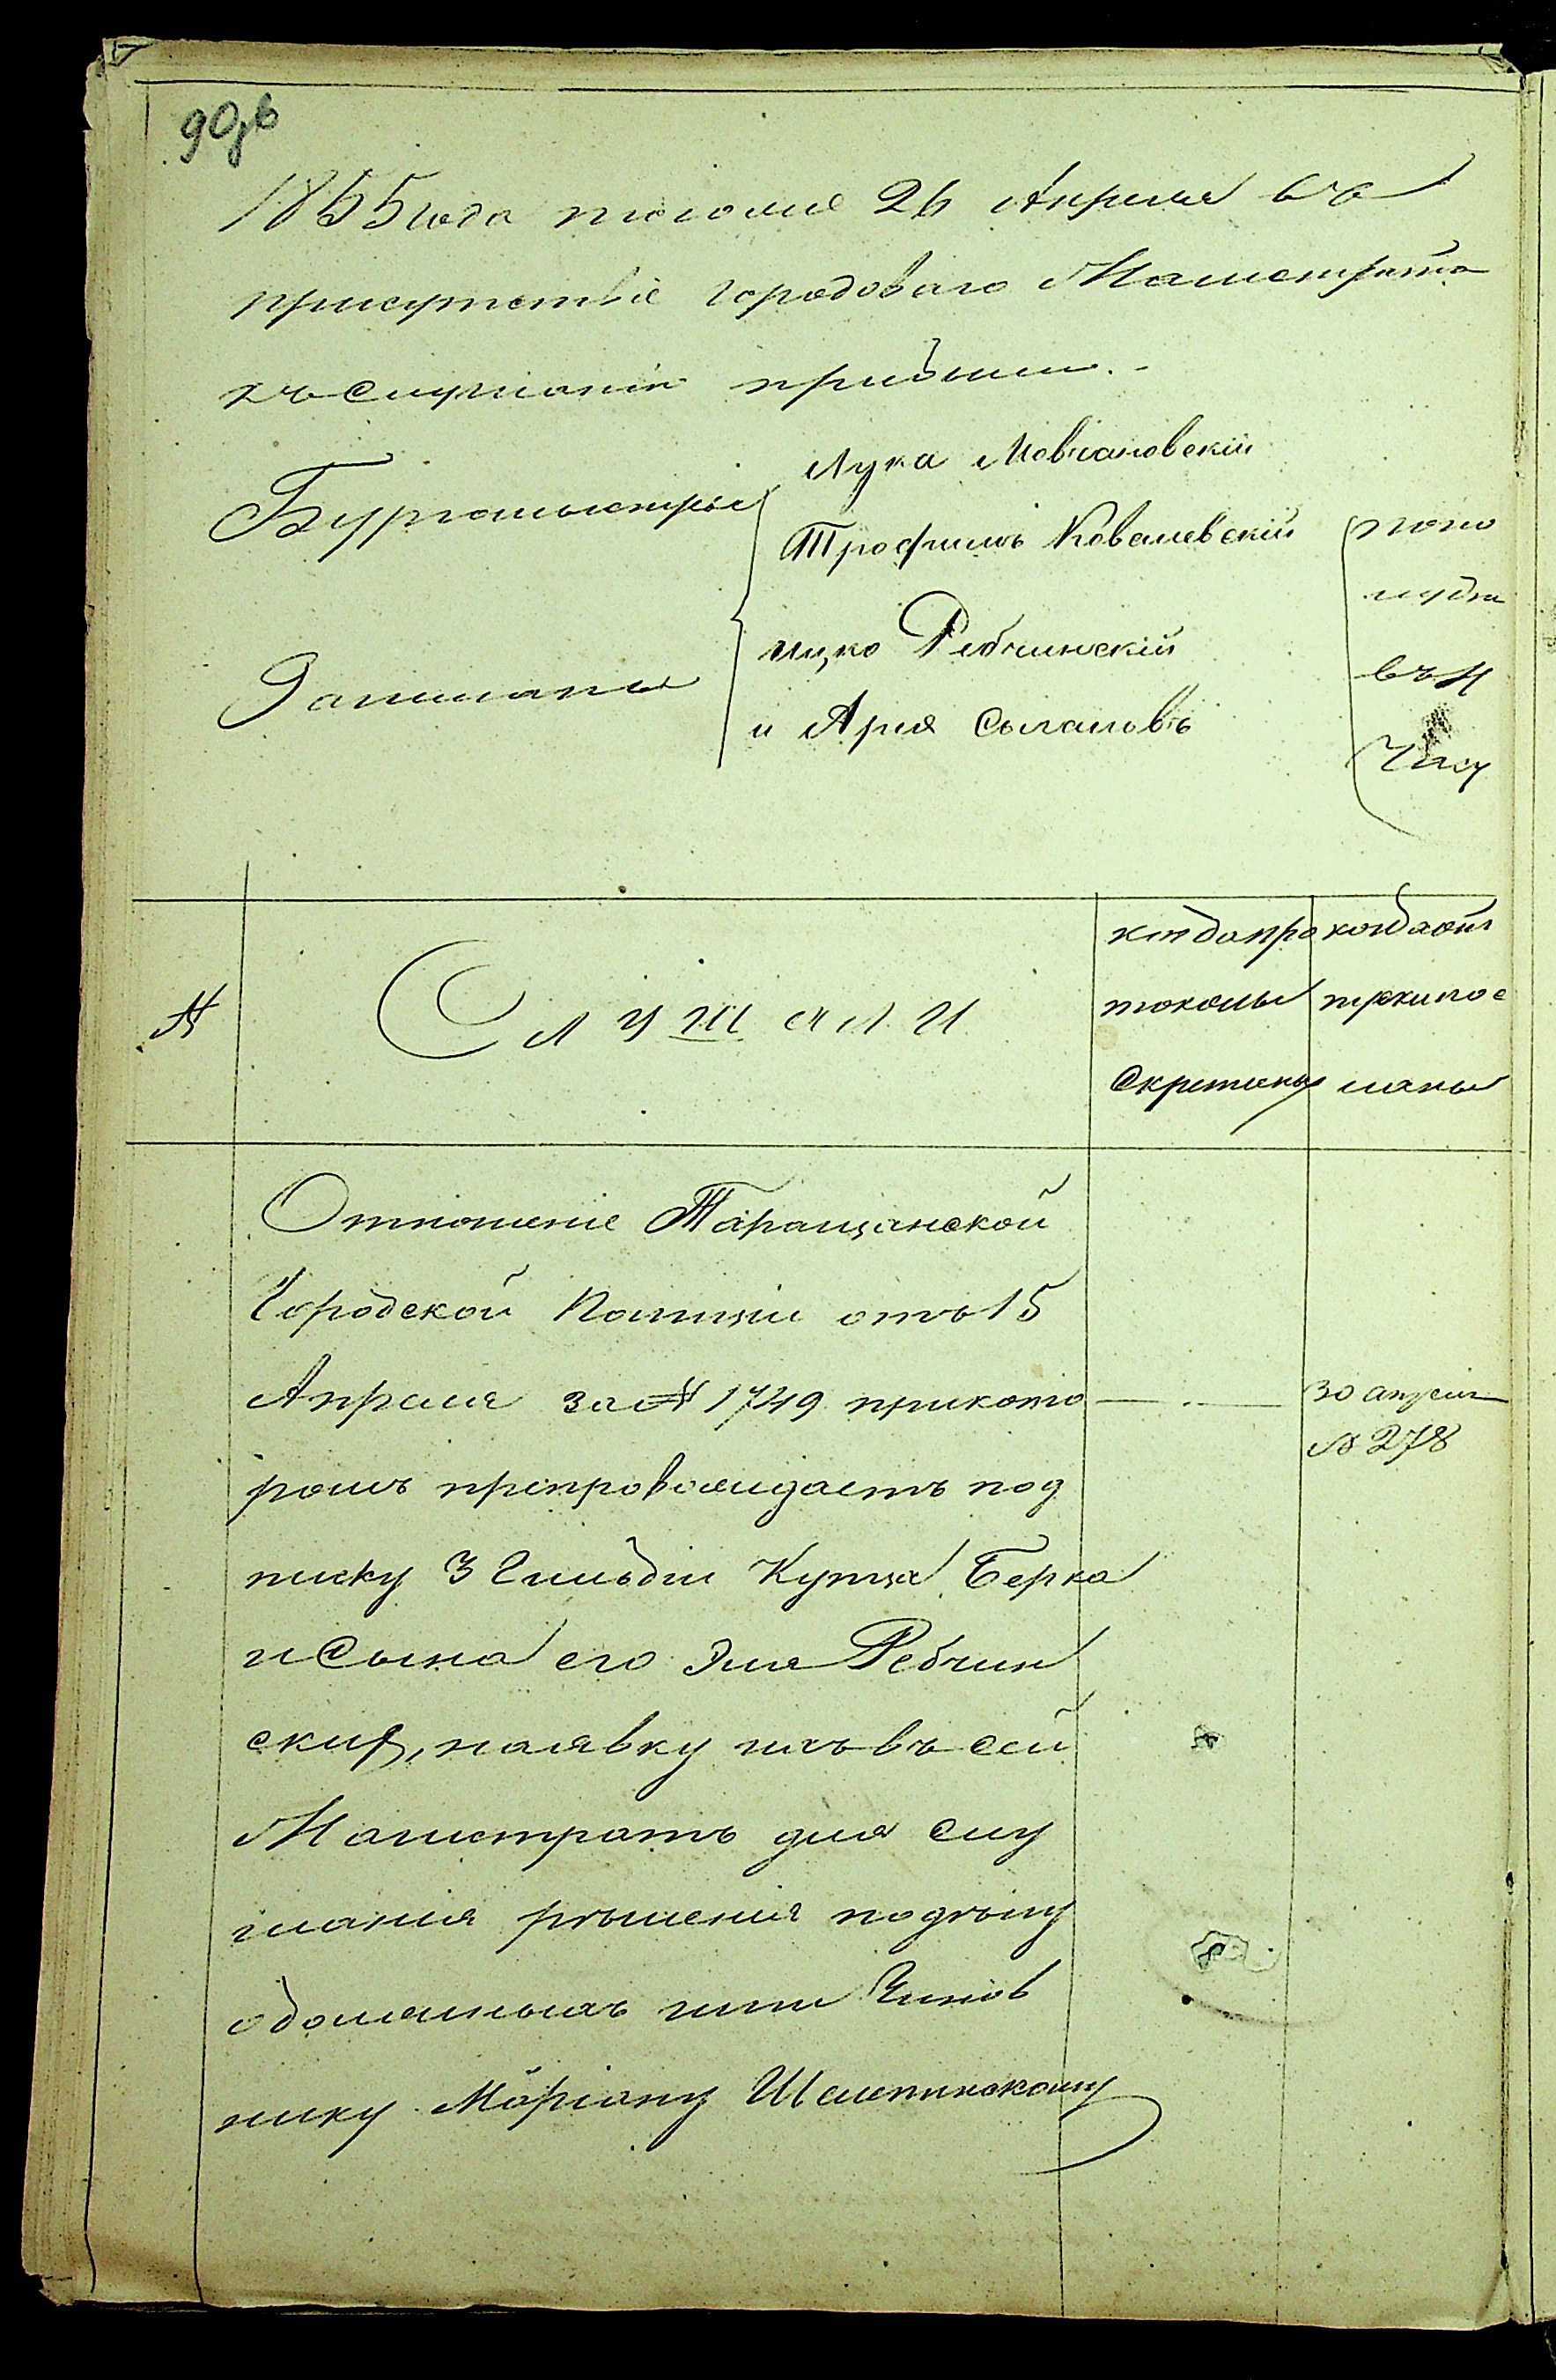 90об
1855 года Апреля 26 въ
присутствіе Городоваго Магистрата
къ слушанію прибыли.
Бургомистры
Лука Мовчановскій
Трофимъ Ковалевскій
Ратманы
Ицко Ребчинскій
и Арія
попо
лудни
въ
Часу
№
Слушали
когда про
токолы
скреплены
когда от
пуски пос
ланы
Отношеніе Таращанской
Городской Полиціи отъ 15
Апреля за № 1749 при кото
ромъ препровождаетъ под
писку 3 Гильдіи Купца Берка
и Сына его Эля Ребчин
скихъ, на явку ихъ въ сей
Магистратъ для слу
шанія рѣшенія по дѣлу
о должныхъ ими Чинов
нику Маріану Шелепинскому
30 апреля
№ 278